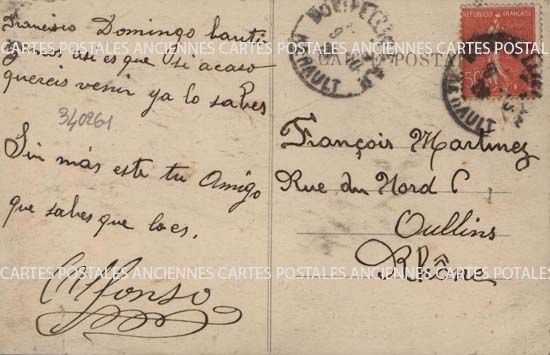 Francisco Domingo bauti
asi es que si acaso
quereis venir ya lo sabes
340261
Sin más este tu Amigo
que sabes que loes.
Alfonso
CARTE POSTALE
REPUBLIQUE FRANÇAISE
50
MONTPELLIER
HERAULT
HERAULT
François Martinez
Rue du Nord 6
Oullins
Rhône
CARTES POSTALES ANCIENNES CARTES POSTALES ANCIENNES CARTES POSTALES ANCIENNES
CARTES POSTALES ANCIENNES CARTES POSTALES ANCIENNES CARTES POSTALES ANCIENNES